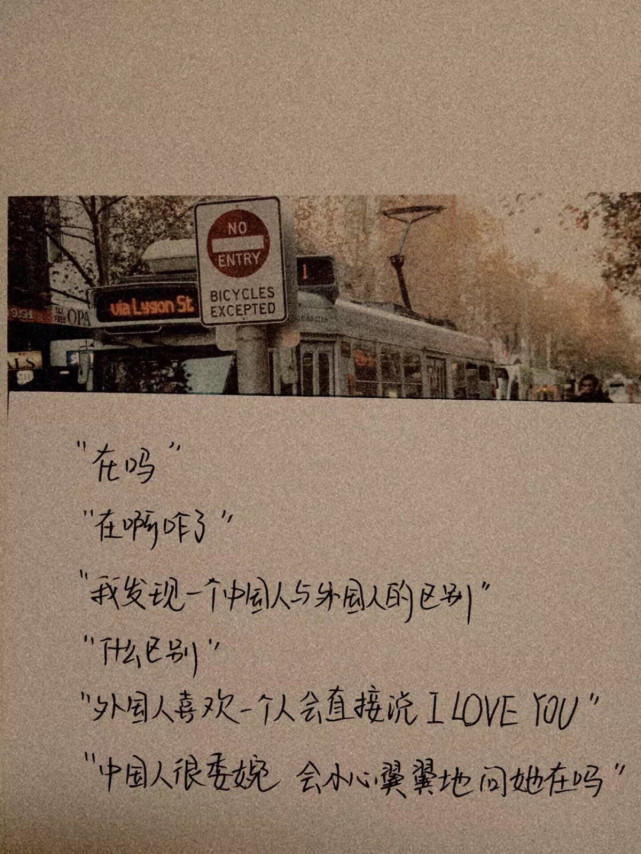 NO
ENTRY
BICYCLES
EXCEPTED
via Lygon St
1
OPA
"在吗"
"在啊咋了"
"我发现一个中国人与外国人的区别"
"什么区别"
"外国人喜欢一个人会直接说 I LOVE YOU"
"中国人很委婉 会小心翼翼地问她在吗"